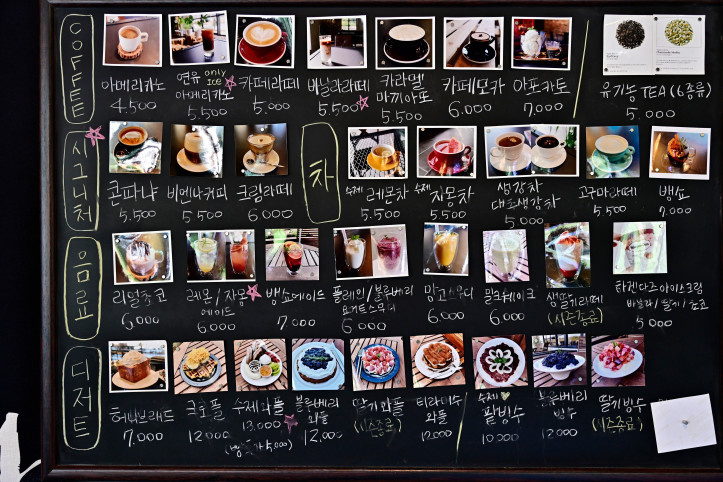 COFFEE
아메리카노
4.500
연유 only ICE
아메리카노
5.500
카페라떼
5.000
바닐라라떼
5.500
카라멜
마끼아또
5.500
카페모카
6.000
아포카토
7.000
유기농 TEA (6종류)
5.000
시그니처
콘파냐
5.500
비엔나커피
5.500
크림라떼
6.000
차
수제 레몬차
5.500
수제 자몽차
5.500
생강차
대추생강차
5.000
고구마라떼
5.500
뱅쇼
7.000
음료
리얼초코
6.000
레몬/자몽
에이드
6.000
뱅쇼에이드
7.000
플레인/블루베리
요거트스무디
6.000
망고스무디
6.000
밀크쉐이크
6.000
생딸기라떼
(시즌종료)
하겐다즈아이스크림
바닐라/딸기/초코
5.000
디저트
허니브레드
7.000
크로플
12.000
수제와플
13.000
블루베리
와플
12.000
딸기와플
(시즌종료)
티라미수
와플
12.000
수제
팥빙수
10.000
블루베리
빙수
12.000
딸기빙수
(시즌종료)